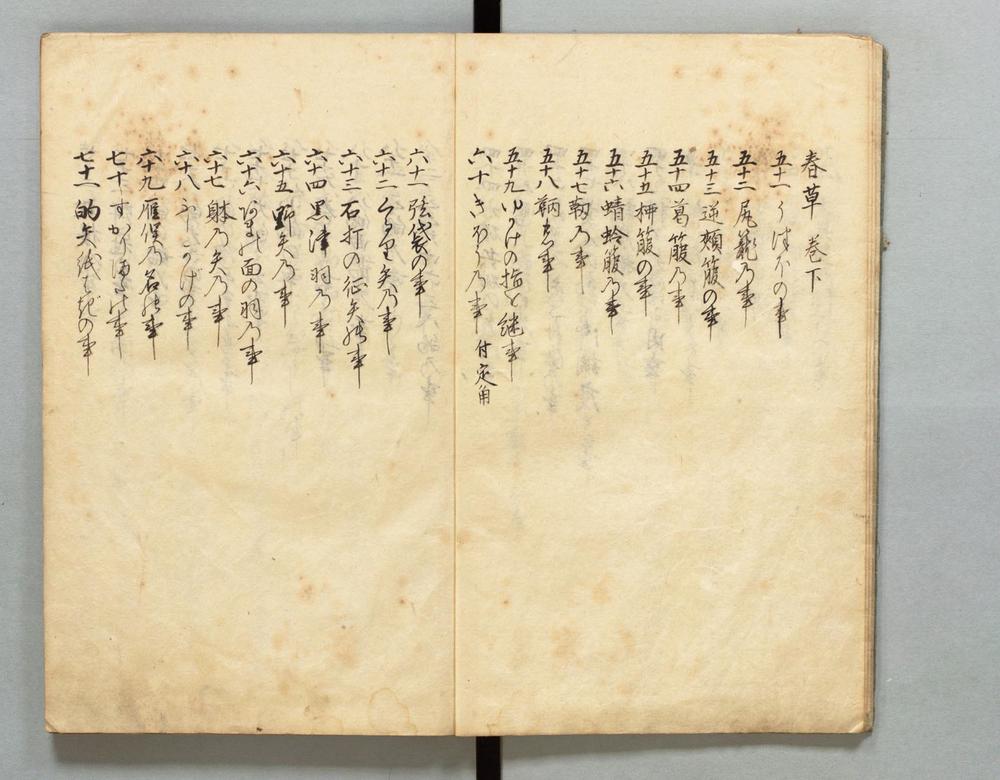 春草　巻下
五十一　うつほの事
五十二　尻籠乃事
五十三　逆頬箙の事
五十四　葛箙乃事
五十五　柳箙の事
五十六　蜻蛉箙乃事
五十七　靭乃事
五十八　鞆乃事
五十九　ゆかけの指を継事
六十　きほう乃事　付定角
六十一　弦袋の事
六十二　矢乃事
六十三　石打の征矢能事
六十四　黒津羽乃事
六十五　野矢乃事
六十六　面の羽乃事
六十七　乃矢乃事
六十八　かげの事
六十九　雁俣乃名能事
七十　すかり
七十一　的矢の事